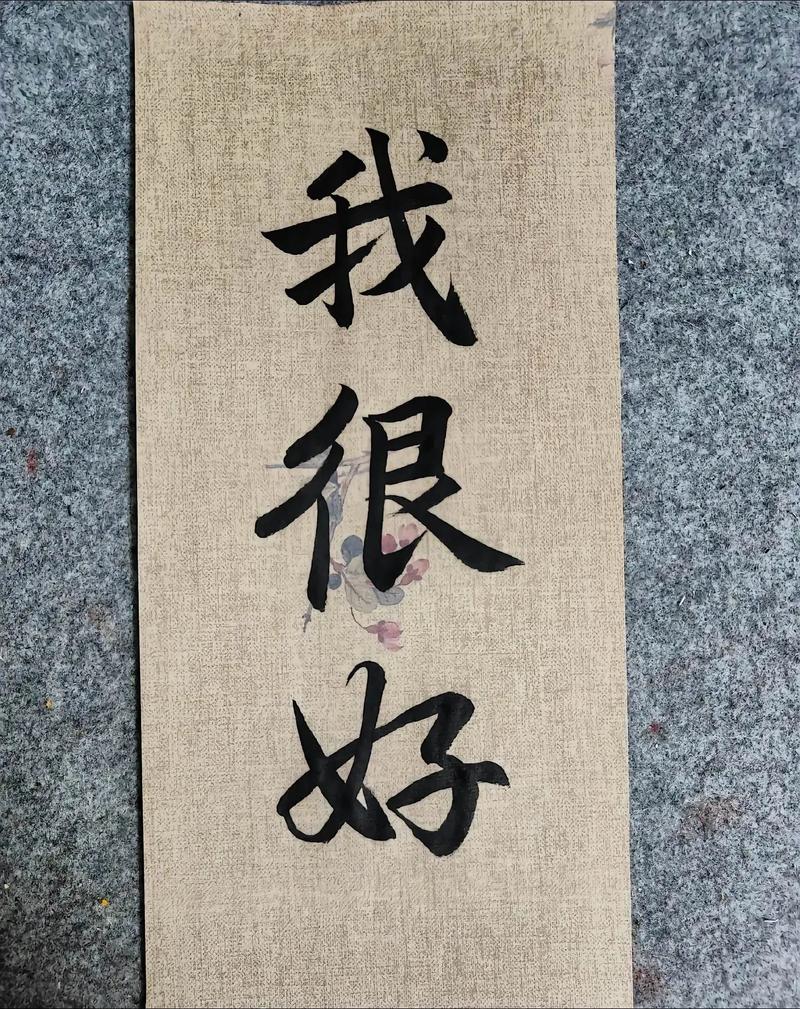 我很好